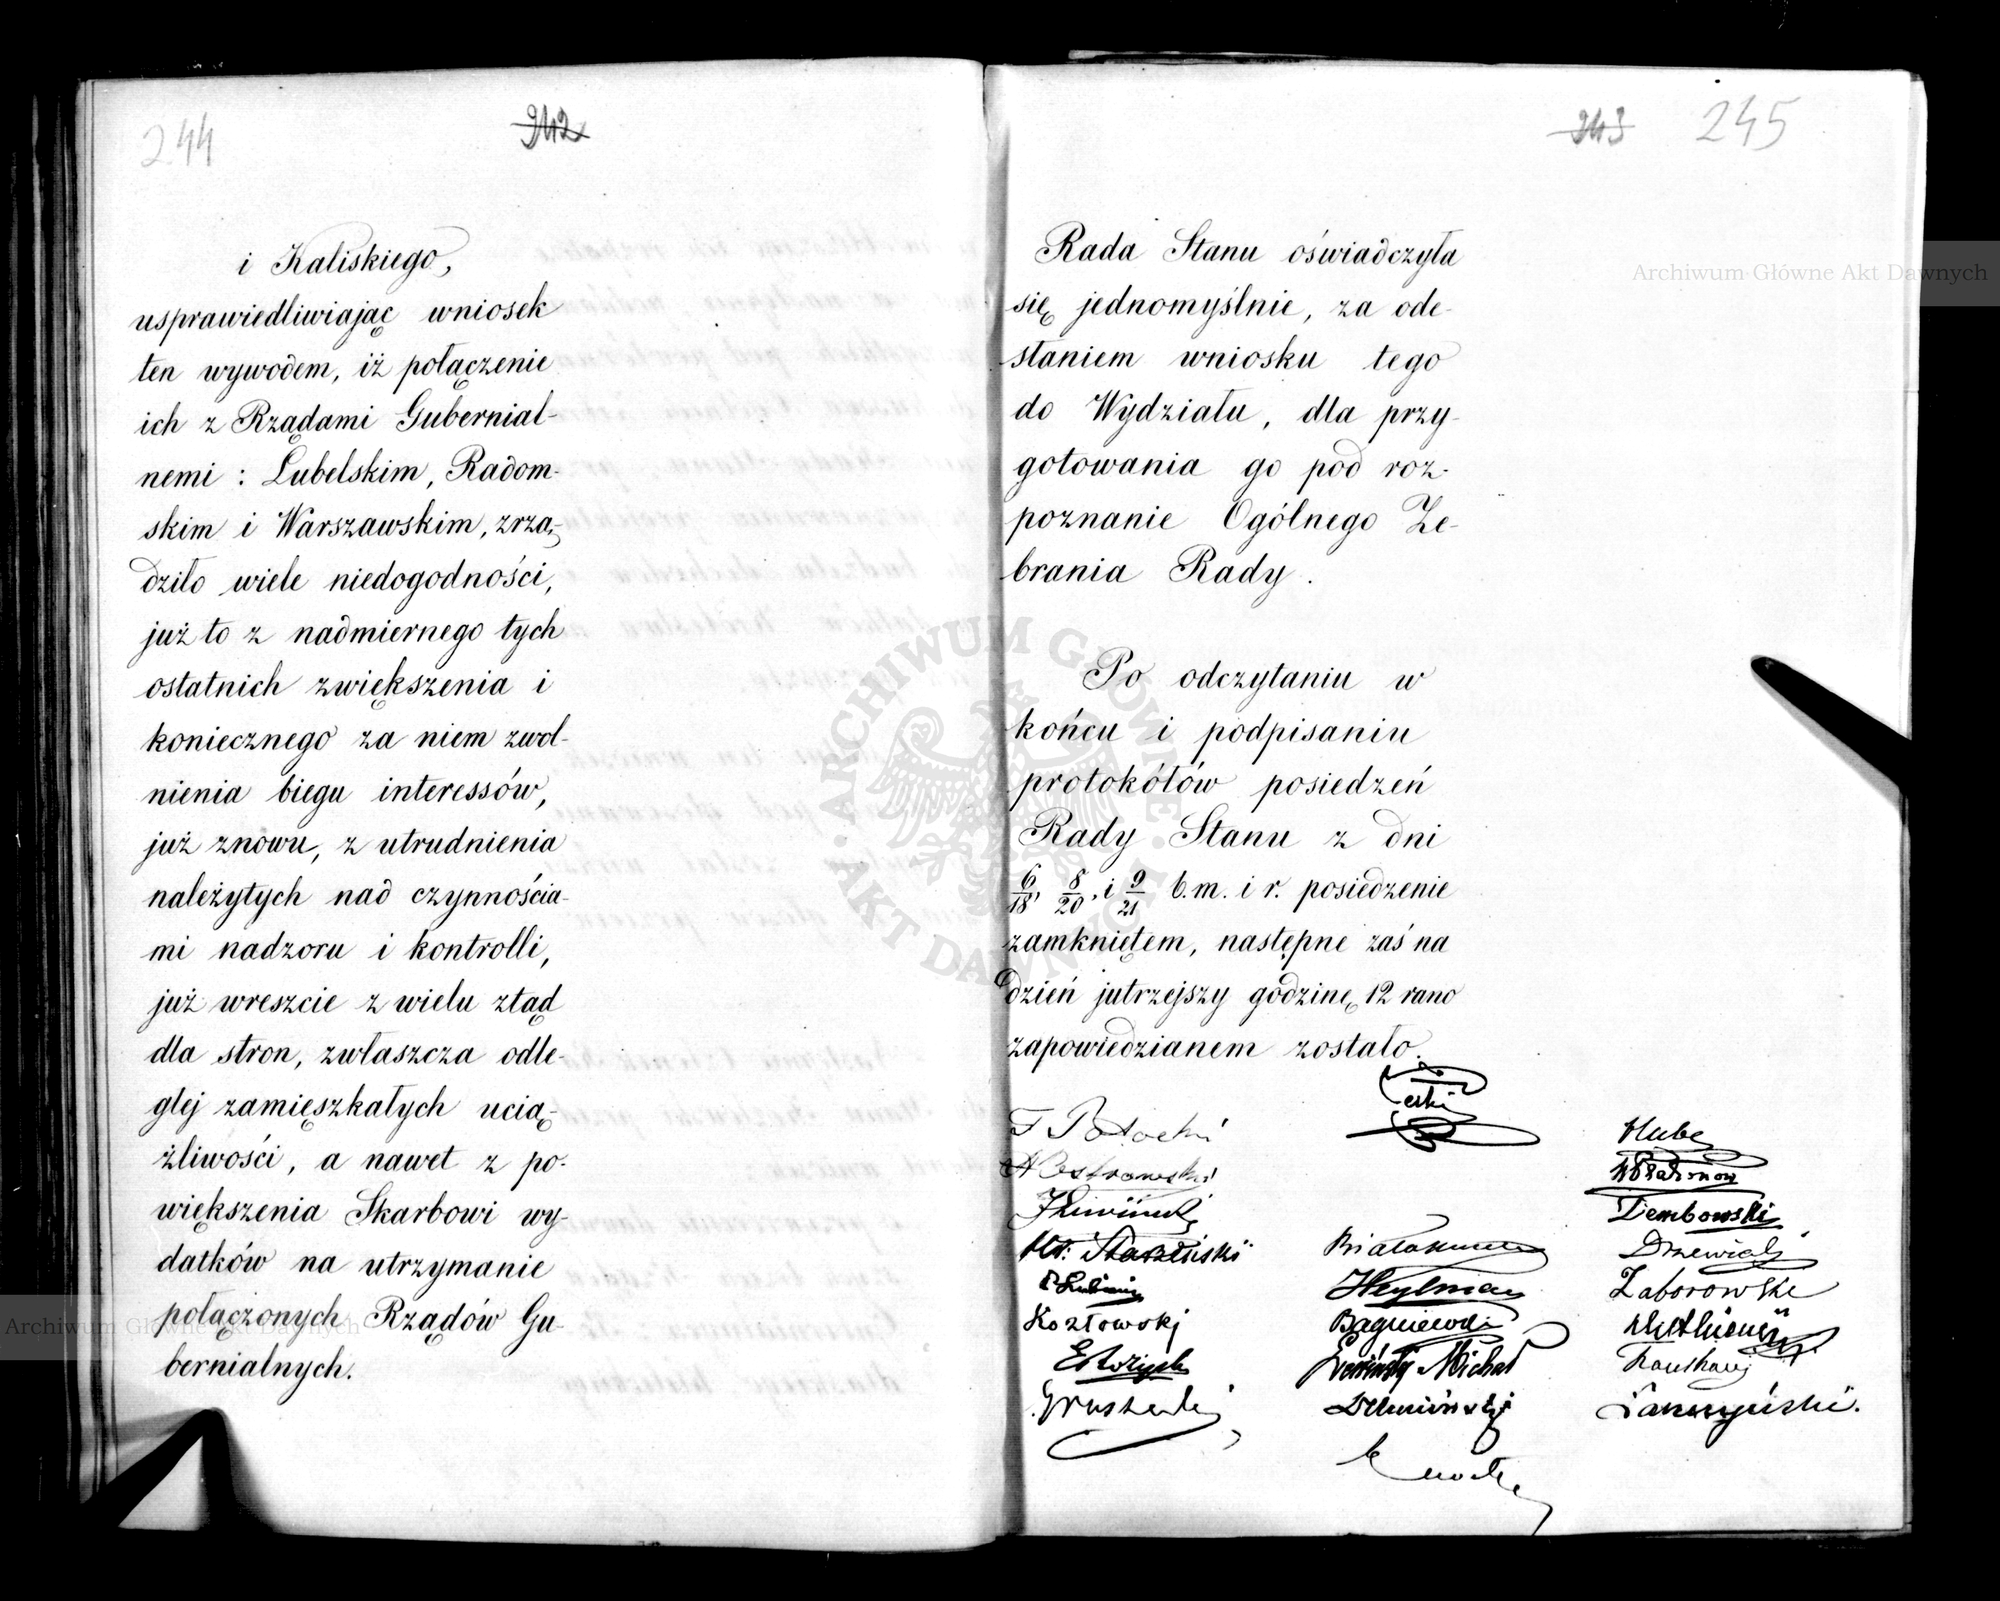 244
242
i Kaliskiego,
usprawiedliwiając wniosek
ten wywodem, iż połączenie
ich z Rządami Gubernial-
nemi: Lubelskim, Radom-
skim i Warszawskim, zrzą-
dziło wiele niedogodności,
już to z nadmiernego tych
ostatnich zwiększenia i
koniecznego za niem zwol-
nienia biegu interessów,
już znowu, z utrudnienia
należytych nad czynnościa-
mi nadzoru i kontrolli,
już wreszcie z wielu ztąd
dla stron, zwłaszcza odle-
głej zamięszkałych ucią-
żliwości, a nawet z po-
większenia Skarbowi wy-
datków na utrzymanie
połączonych Rządów Gu-
bernialnych.
243
245
Rada Stanu oświadczyła
się jednomyślnie, za ode-
słaniem wniosku tego
do Wydziału, dla przy-
gotowania go pod roz-
poznanie Ogólnego Ze-
brania Rady.
Po odczytaniu w
końcu i podpisaniu
protokółów posiedzeń
Rady Stanu z dni
6/18, 8/20, i 9/21 b.m. i r. posiedzenie
zamkniętem, następne zaś na
dzień jutrzejszy godzinę 12 rano
zapowiedzianem zostało.
Hube
Dembowski
Białoskurski
Drzewiecki
Heylman
Zaborowski
Kozłowski
Bagniewski
Michał
Archiwum Główne Akt Dawnych
ARCHIWUM GŁÓWNE AKT DAWNYCH
Archiwum Główne Akt Dawnych